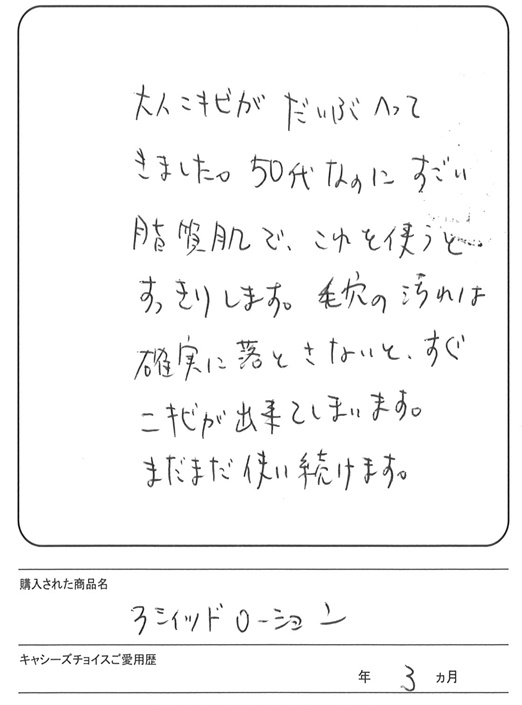 大人ニキビが だいぶ へって
きました。50代なのに すごい
脂質肌で、これを使うと
すっきりします。毛穴の汚れは
確実に落とさないと、すぐ
ニキビが出来てしまいます。
まだまだ使い続けます。
購入された商品名
ろシイッドローション
キャシーズチョイスご愛用歴
年 3 ヵ月